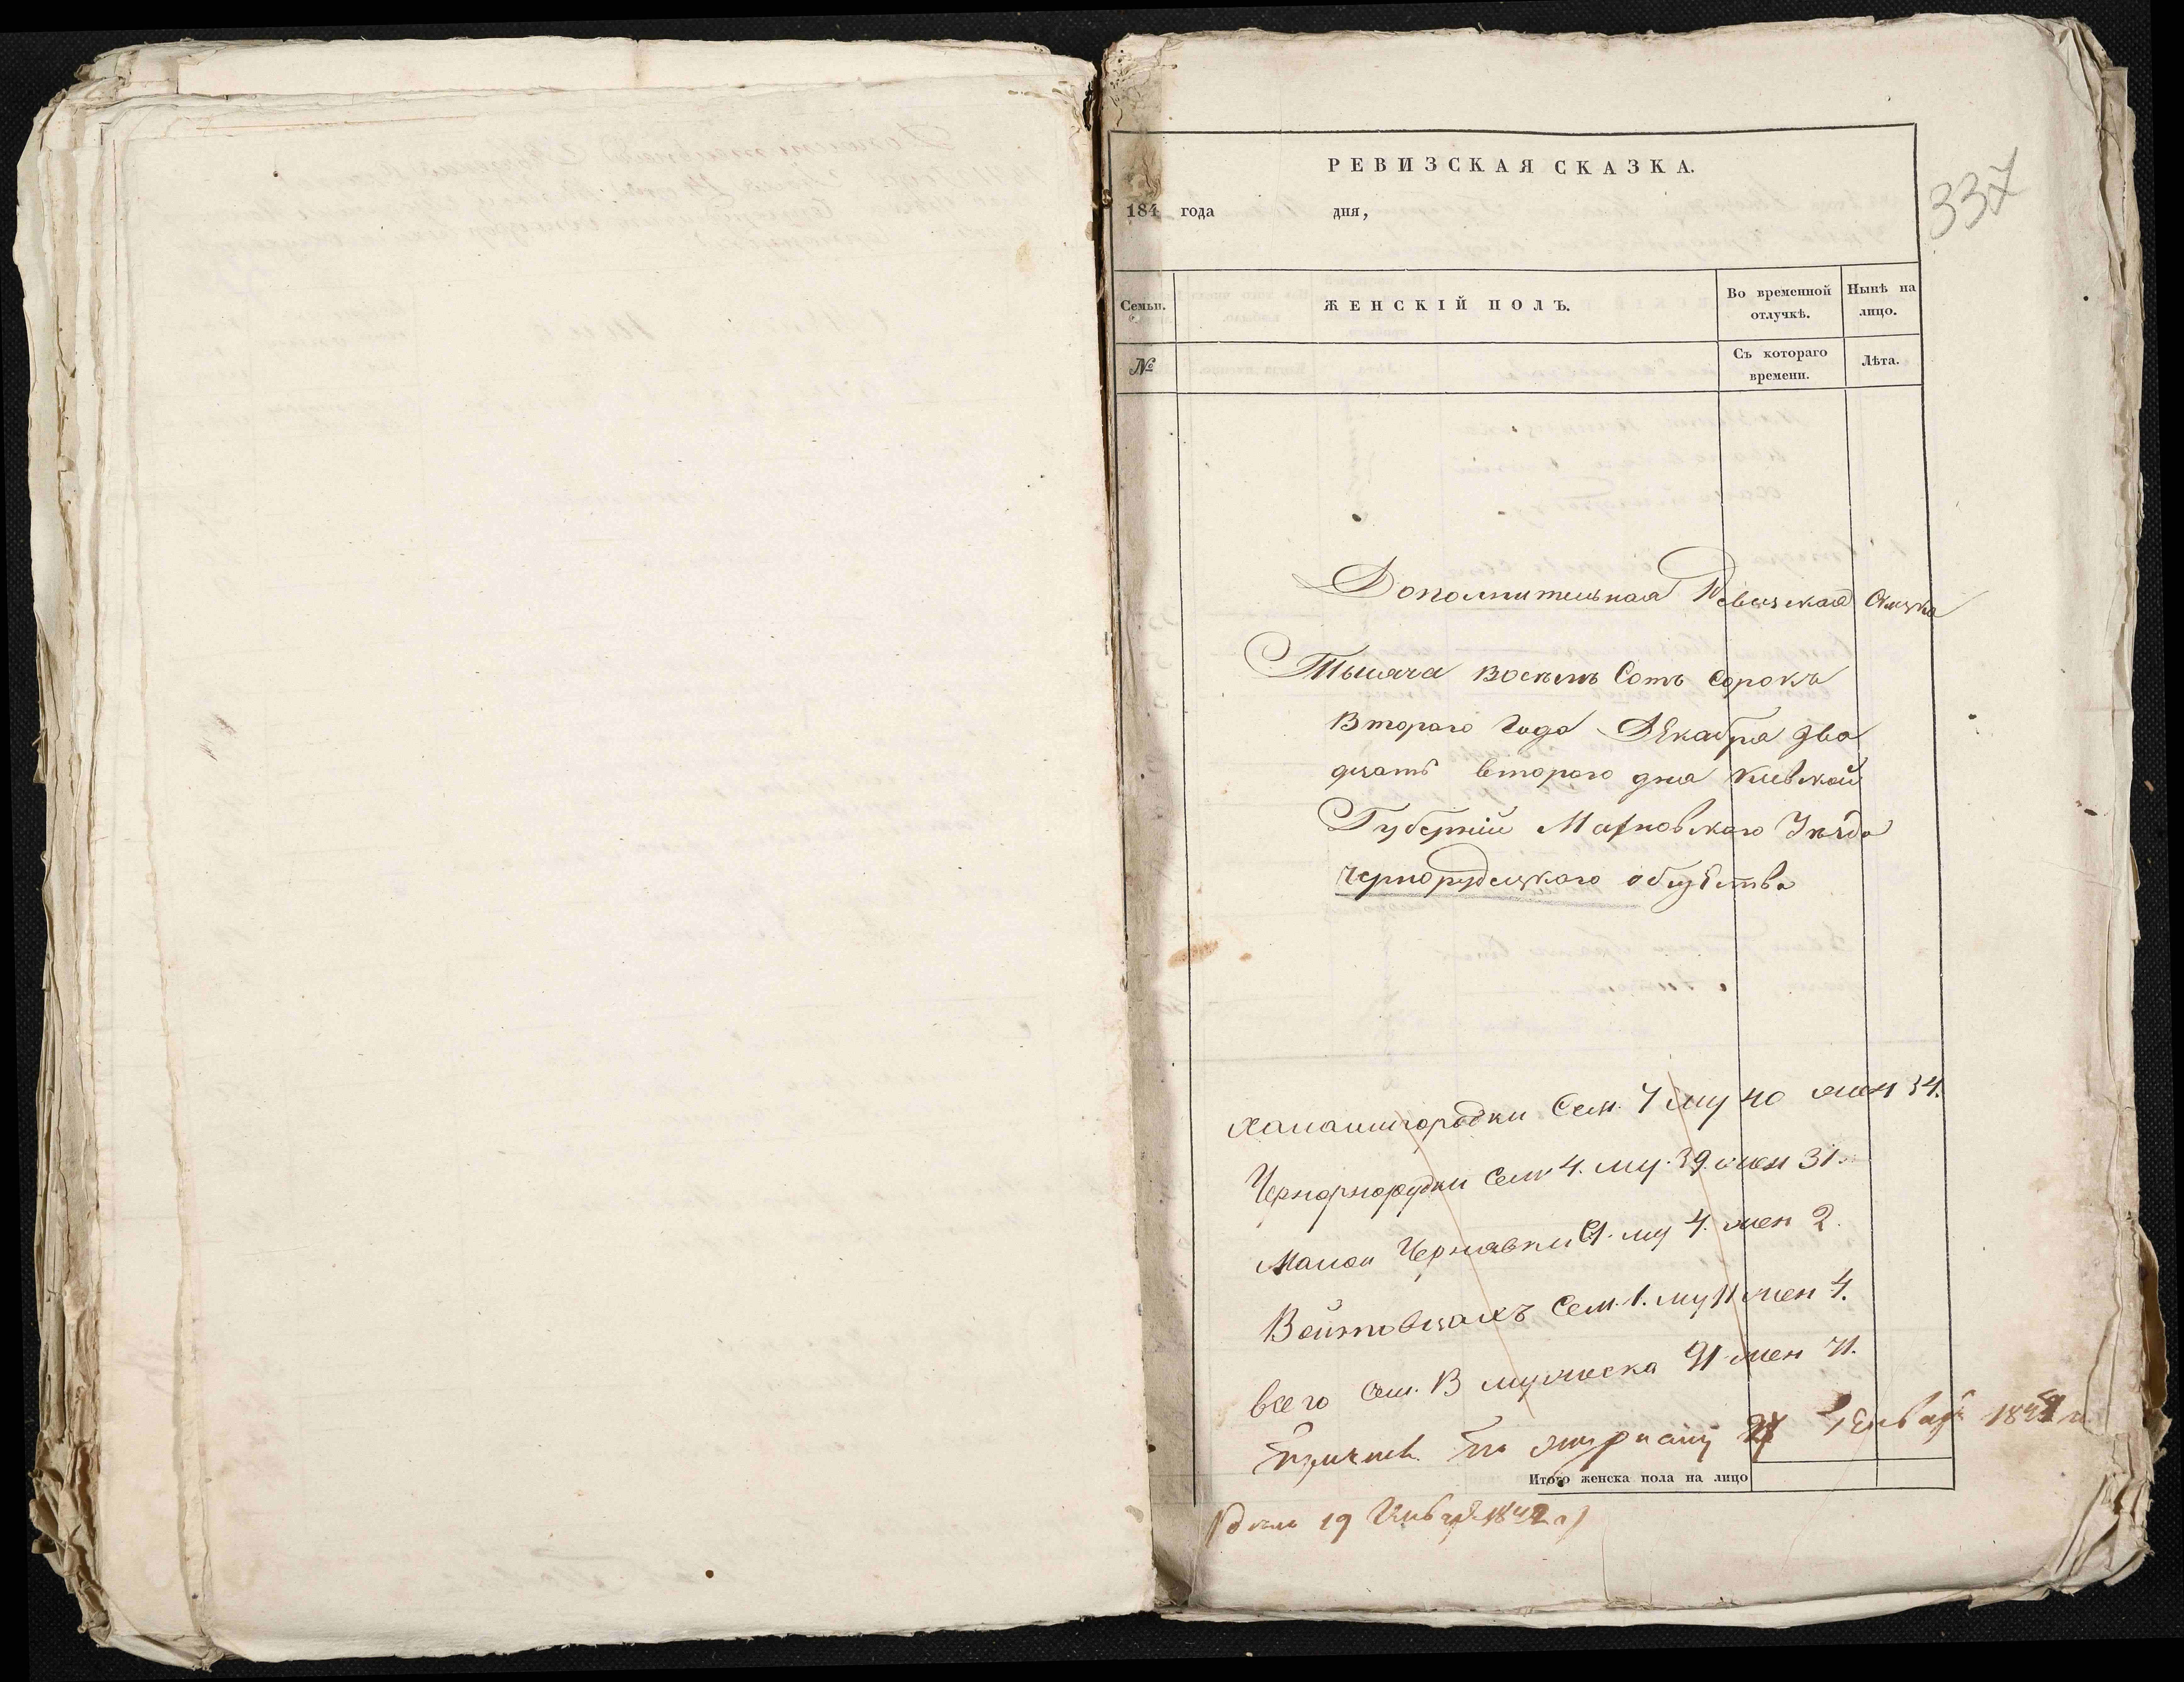 РЕВИЗСКАЯ СКАЗКА.
184 года дня,
337
Семьи.
ЖЕНСКІЙ ПОЛЪ.
Во временной отлучкѣ.
Нынѣ на лицо.
№
Съ котораго времени.
Лѣта.
Дополнительная Ревизская Сказка
Тысяча восемь Сотъ Сорокъ
Втораго Года Декабря два
дцать второго дня Киевской
Губерніи Махновского Уезда
Чернорудецкого общества
Сем. 7 му 40 жен 34.
Сем 4. му. 39. жен 31.
Малой Чернявки 1. му 4. жен 2.
Войтовцахъ Сем. 1. му 11 жен 4.
всего Сем. 13 мужеска 91 жен 71.
по Январ
Итого женска пола на лицо
19 Января